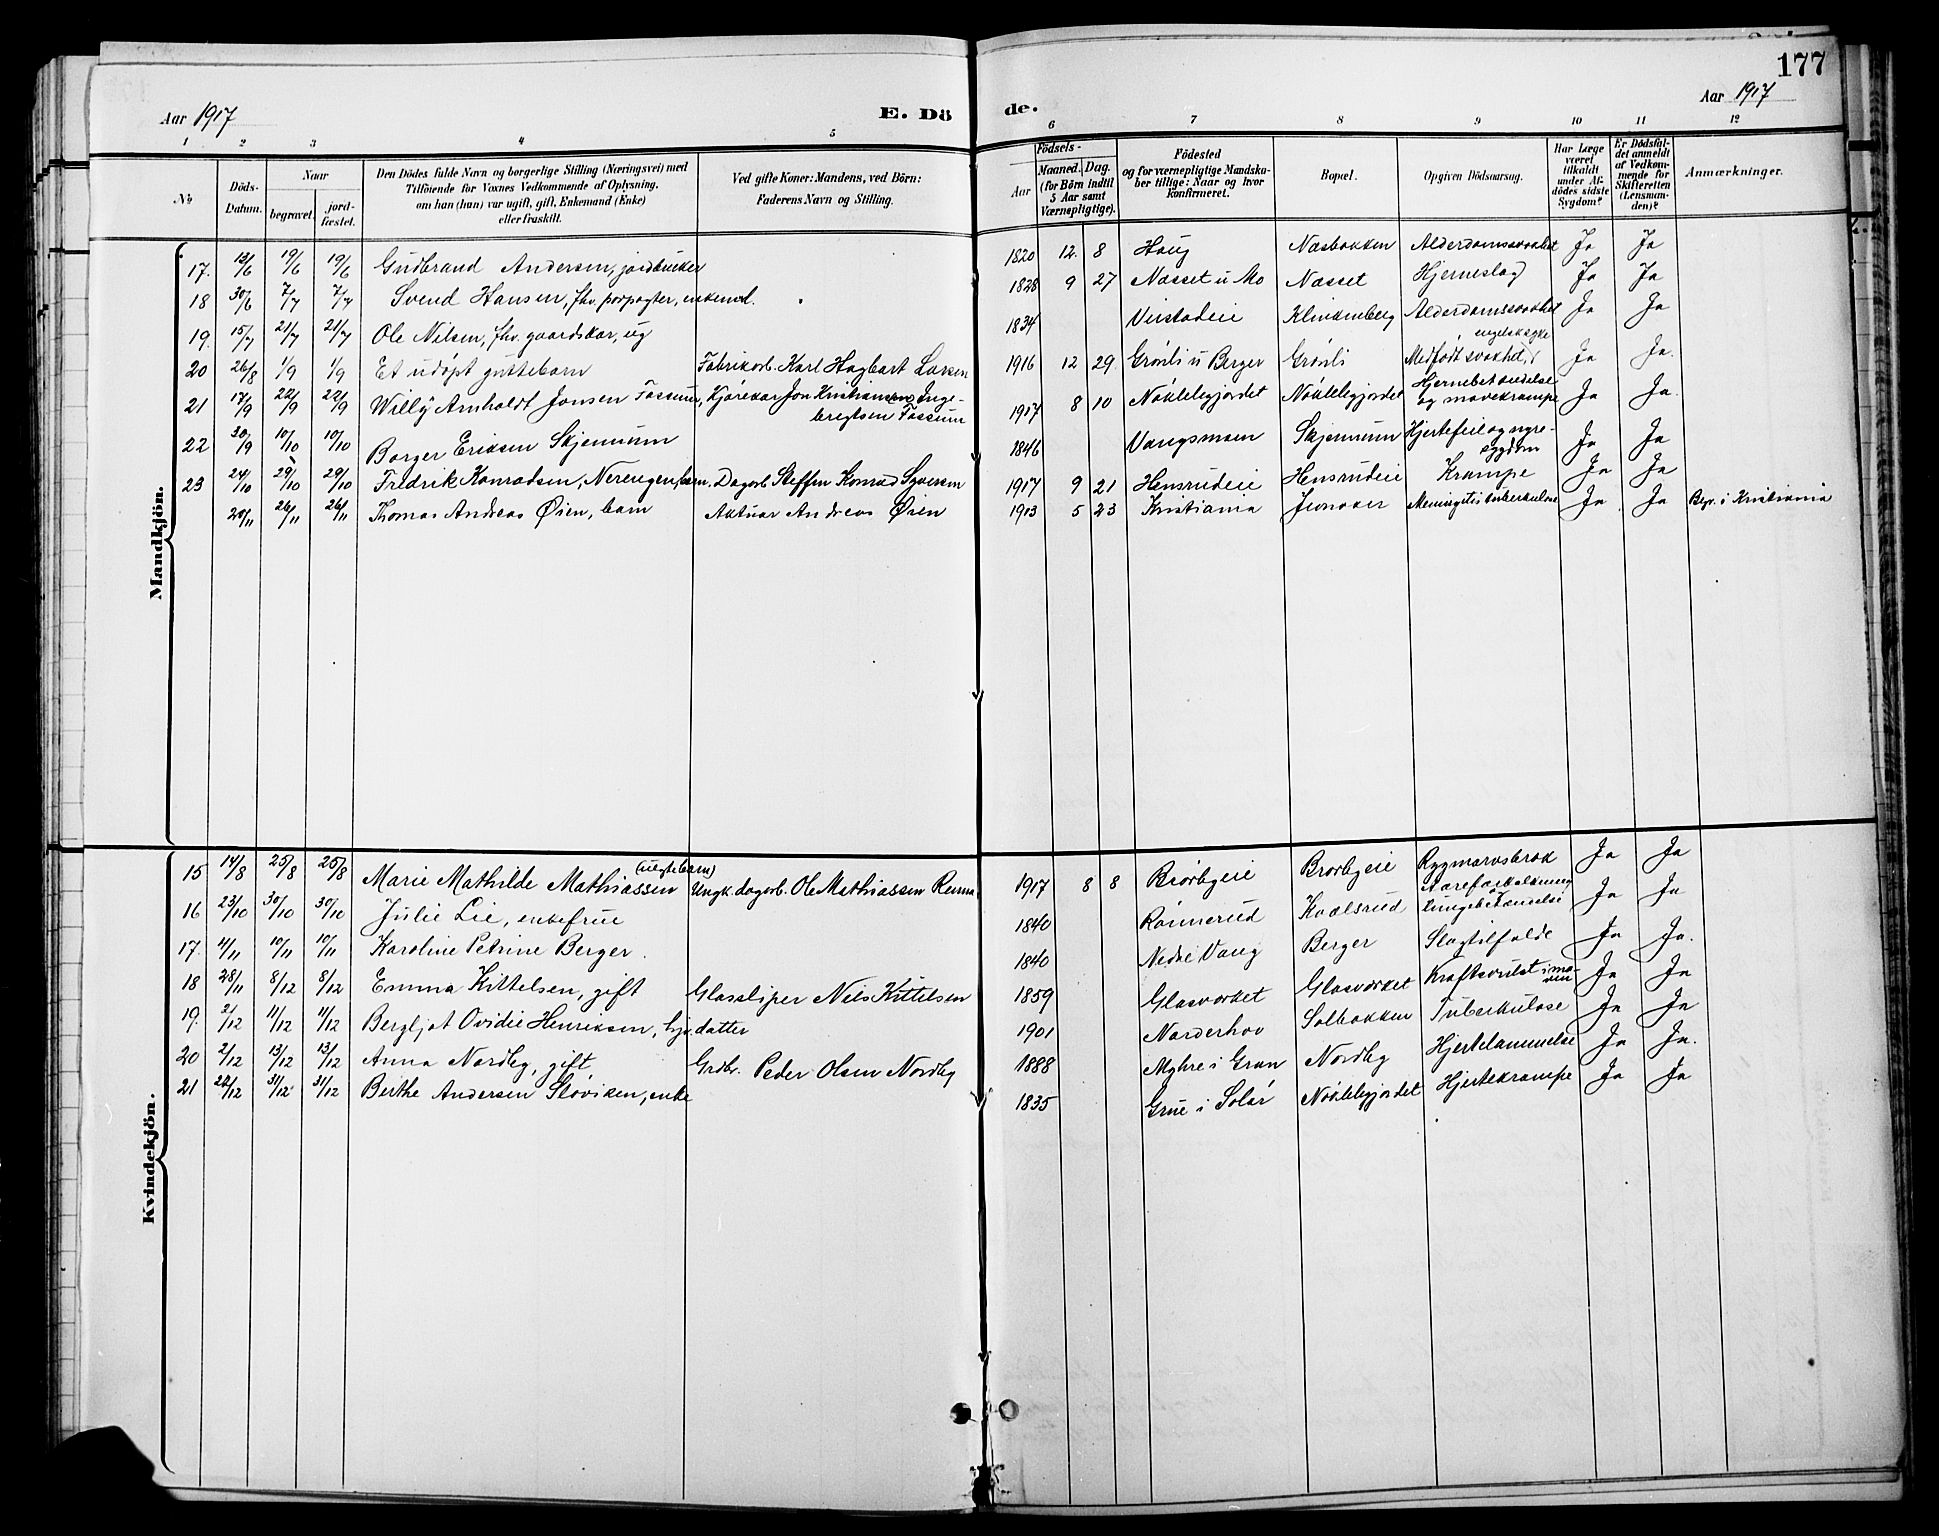 177
Aar 1917 E. Dö de. Aar 1917
1 2 3 4 5 6 7 8 9 10 11 12
№
Döds-Datum.
Naar
begravet.
jord-fæstet.
Den Dödes fulde Navn og borgerlige Stilling (Næringsvei) med
Tilföiende for Voxnes Vedkommende af Oplysning,
om han (hun) var ugift, gift, Enkemand (Enke)
eller fraskilt.
Ved gifte Koner: Mandens, ved Börn:
Faderens Navn og Stilling.
Födsels-
Aar
Maaned. Dag.
(for Börn indtil
5 Aar samt
Værnepligtige).
Födested
og for værnepligtige Mandska-
ber tillige: Naar og hvor
konfirmeret.
Bopæl.
Opgiven Dödsaarsag.
Har Læge
været
tilkaldt
under Af-
dödes sidste
Sygdom?
Er Dödsfal-
det anmeldt
af Vedkom-
mende for
Skifteretten
(Lensman-
den)?
Anmærkninger.
Mandkjön.
17. 13/6 19/6 19/6 Gudbrand Andersen, jordbruker 1820 12. 8 Haug Næsbakken Alderdomssvakhet Ja Ja
18 30/6 7/7 7/7 Svend Hansen, fhv. forpagter, enkemd. 1828 9 27 Næsset u Mo Næsset Hjerneslag Ja Ja
19. 15/7 21/7 21/7 Ole Nilsen, fhv. gaardskar, ug 1834 Veistadeie Klinkenberg Alderdomssvakhet Ja Ja
20 26/8 1/9 1/9 Et udöpt guttebarn Fabrikarb. Karl Hagbart Larsen 1916 12 29 Grönli u Berger Grönli Medfödt svakhet, engelsk syke Ja Ja.
21 17/9 22/9 22/9 Willy Arnholdt Jonsen Fossum, Kjörekar Jon Kristiansen Inge-
bregtsen Fossum 1917 8 10 Nöklebyjordet Nöklebyjordet Hjernebetændelse
og mavekrampe Ja Ja.
22 30/9 10/10 10/10 Borger Eriksen Skjennum 1846 Vangsmoen Skjennum Hjertefeil og nyre-
sygdom Ja Ja
23 24/10 29/10 29/10 Fredrik Konradsen, Nerengen, barn. Dagarb. Steffen Konrad Syversen 1917 9 21 Hensrudeie Hensrudeie Krampe Ja Ja
20/11 26/11 26/11 Thomas Andreas Øien, barn Aktuar Andreas Øien 1913 5 23 Kristiania Jevnaker Meningitis tuberkulose Ja Ja Bgr. i Kristiania
Kvindekjön.
15 14/8 25/8 25/8 Marie Mathilde Mathiassen (uegtebarn) Ungk. dagarb. Ole Mathiassen Renna 1917 8 8 Brörbyeie Brörbyeie Rygmarvsbrok Ja Ja
16 23/10 30/10 30/10 Julie Lie, enkefrue 1840 Rönnerud Kvælsrud Aareforkalkning
lungebetændelse Ja Ja
17. 4/11 10/11 10/11 Karoline Petrine Berger. 1840 Nedre Vang Berger Slagtilfælde Ja Ja.
18 28/11 8/12 8/12 Emma Kittelsen, gift Glassliper Nils Kittelsen 1859 Glasværket Glasværket Kræftsvulst i ma-
ven Ja Ja
19. 2/12 11/12 11/12 Bergljot Ovidie Henriksen, hjv. datter 1901 Norderhov Solbakken Tuberkulose Ja Ja
20 2/12 13/12 13/12 Anna Nordby, gift Grdbr. Peder Olsen Nordby 1888 Myhre i Gran Nordby Hjertelammelse Ja Ja.
21 22/12 31/12 31/12 Berthe Andersen Slöviken, enke 1835 Grue i Solör Nöklebyjordet Hjertekrampe Ja Ja